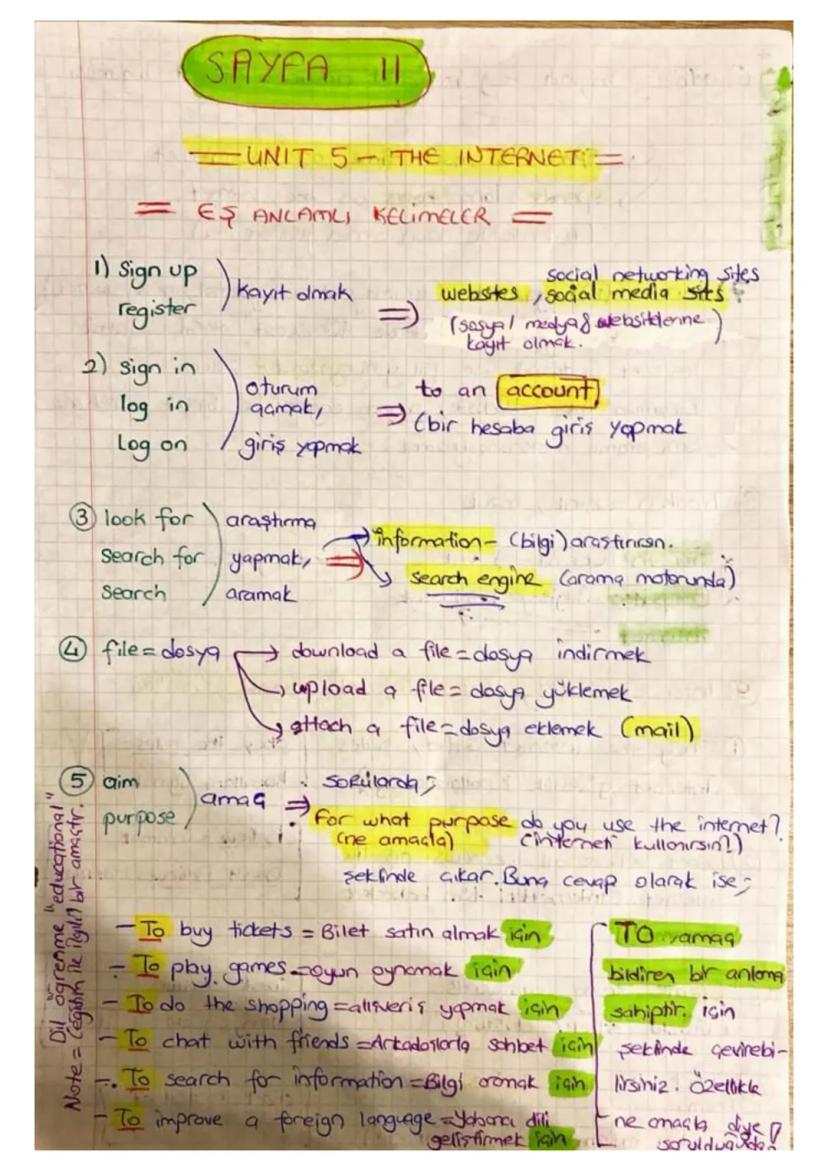 SAYFA 11
= UNIT 5 - THE INTERNET =
= EŞ ANLAMLI KELİMELER =
1) Sign up
register
kayıt olmak
⇒ websites, social networking sites
social media sites
(sosyal medya & websitelerine
kayıt olmak.)
2) Sign in
log in
Log on
oturum
açmak,
giriş yapmak
⇒ to an account
(bir hesaba giriş yapmak
③ look for
search for
search
araştırma
yapmak,
aramak
information - (bilgi) araştırırsın.
search engine (arama motorunda)
④ file = dosya → download a file = dosya indirmek
→ upload a file = dosya yüklemek
→ attach a file = dosya eklemek (mail)
⑤ aim
purpose
amaç ⇒
sorularda;
For what purpose do you use the internet?
(ne amaçla) (interneti kullanırsın?)
şeklinde çıkar. Buna cevap olarak ise;
- To buy tickets = Bilet satın almak için
- To play games = oyun oynamak için
- To do the shopping = alışveriş yapmak için
- To chat with friends = Arkadaşlarla sohbet için
- To search for information = Bilgi aramak için
- To improve a foreign language = Yabancı dili
geliştirmek için
TO → amaç
bildiren bir anlama
sahiptir. için
şeklinde çevirebi-
lirsiniz. Özellikle
ne amaçla diye
sorulduğunda!
Note = Dil öğrenme "educational"
(eğitim ile ilgili) bir amaçtır.